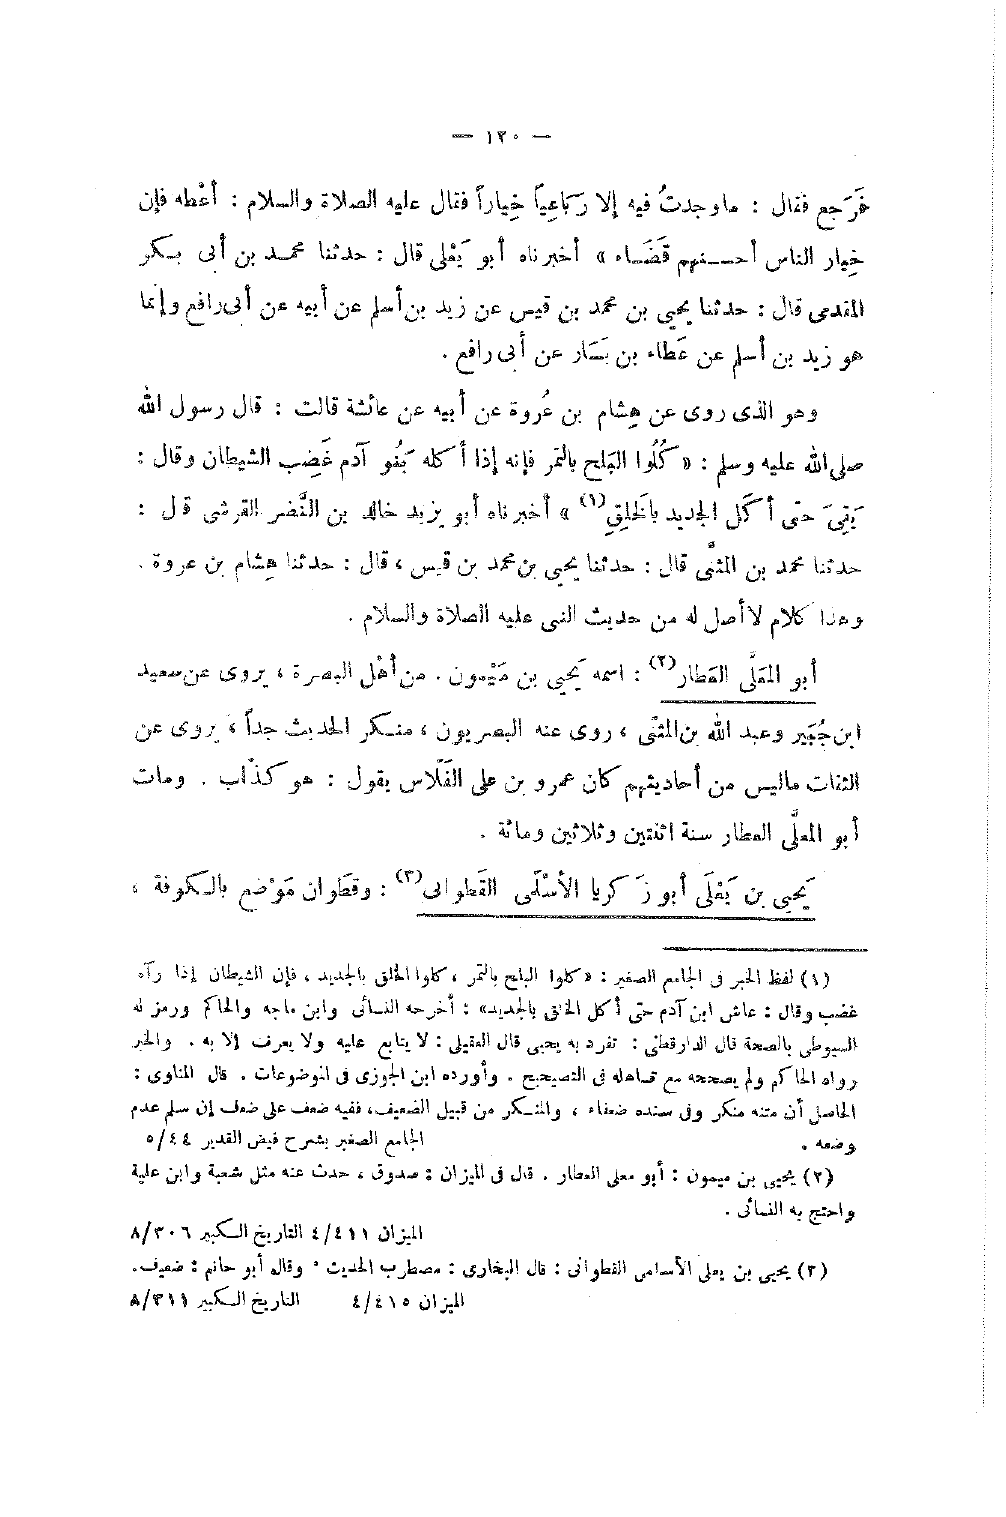 — ١٢٠ —
فَرَجع فقال : ماوجدتُ فيه إلا رَبَاعِياً خِياراً فقال عليه الصلاة والسلام : أعْطه فإن
خِيار الناس أحسنهم قَضَاء » أخبرناه أبو يَعْلى قال : حدثنا محمد بن أبى بكر
المقدمى قال : حدثنا يحيى بن محمد بن قيس عن زيد بن أسلم عن أبيه عن أبى رافع وإنما
هو زيد بن أسلم عن عَطاء بن يَسَار عن أبى رافع .
وهو الذى روى عن هِشام بن عُروة عن أبيه عن عائشة قالت : قال رسول الله
صلى الله عليه وسلم : « كُلُوا البَلح بالتمر فإنه إذا أكله بَنُو آدم غَضِب الشيطان وقال :
بَقِىَ حتى أكَل الجديد بالخَلِقِ (١) » أخبرناه أبو يزيد خالد بن النَّضر القرشى قال :
حدثنا محمد بن المثنَّى قال : حدثنا يحيى بن محمد بن قيس ، قال : حدثنا هِشام بن عروة .
وهذا كلام لا أصل له من حديث النبى عليه الصلاة والسلام .
أبو المعَلَّى العَطار (٢) : اسمه يَحيى بن مَيْمون . من أهْل البصرة ، يروى عن سعيد
ابن جُبَير وعبد الله بن المثنى ، روى عنه البصريون ، منكر الحديث جداً ، يروى عن
الثقات ماليس من أحاديثهم كان عمرو بن على الفَلاَّس يقول : هو كذَّاب . ومات
أبو المعلَّى العطار سنة اثنتين وثلاثين ومائة .
يَحيى بن يَعْلَى أبو زَكريا الأسْلَمى القَطَوانى (٣) : وقَطَوان مَوْضع بالكوفة ،
(١) لفظ الخبر فى الجامع الصغير : «كلوا البلح بالتمر ، كلوا الخلق بالجديد ، فإن الشيطان إذا رآه
غضب وقال : عاش ابن آدم حتى أكل الخلق بالجديد» : أخرجه النسائى وابن ماجه والحاكم ورمز له
السيوطى بالصحة قال الدارقطنى : تفرد به يحيى قال العقيلى : لا يتابع عليه ولا يعرف إلا به . والخبر
رواه الحاكم ولم يصححه مع تساهله فى التصحيح . وأورده ابن الجوزى فى الموضوعات . قال المناوى :
الحاصل أن متنه منكر وفى سنده ضعفاء ، والمنكر من قبيل الضعيف، ففيه ضعف على ضعف إن سلم عدم
وضعه . الجامع الصغير بشرح فيض القدير ٥/٤٤
(٢) يحيى بن ميمون : أبو معلى العطار . قال فى الميزان : صدوق ، حدث عنه مثل شعبة وابن علية
واحتج به النسائى .
الميزان ٤/٤١١ التاريخ الكبير ٨/٣٠٦
(٣) يحيى بن يعلى الأسلمى القطوانى : قال البخارى : مضطرب الحديث . وقال أبو حاتم : ضعيف.
الميزان ٤/٤١٥ التاريخ الكبير ٨/٣١١